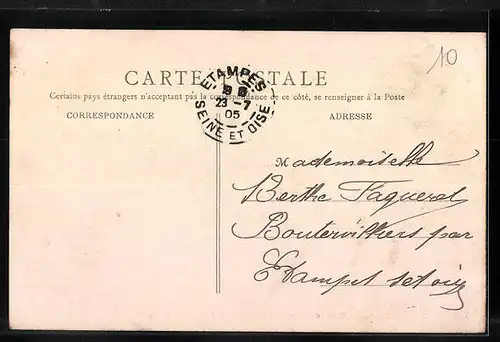 10
CARTE POSTALE
Certains pays étrangers n'acceptant pas la correspondance de ce côté, se renseigner à la Poste
CORRESPONDANCE
ADRESSE
ETAMPES
23 -7
05
SEINE ET OISE
Mademoiselle
Berthe Faqueret
Boutervilliers par
Etampes